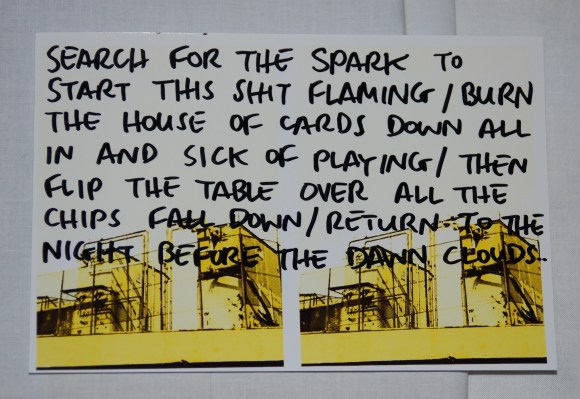 SEARCH FOR THE SPARK TO
START THIS SHIT FLAMING / BURN
THE HOUSE OF CARDS DOWN ALL
IN AND SICK OF PLAYING / THEN
FLIP THE TABLE OVER ALL THE
CHIPS FALL DOWN / RETURN TO THE
NIGHT BEFORE THE DAWN CLOUDS..